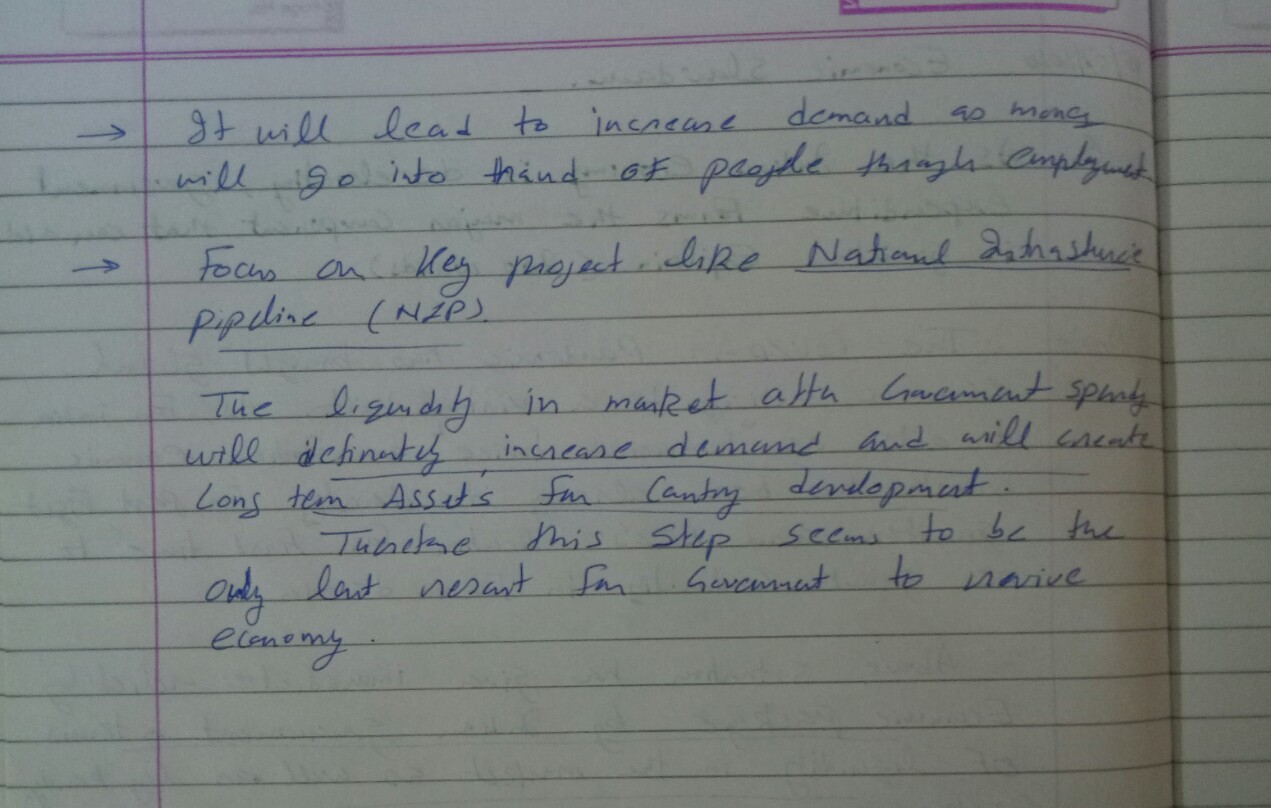 → It will lead to increase demand as money
will go into hand of people through employment
→ Focus on Key project like National Infrastructure
Pipeline (NIP).
The liquidity in market after Government spending
will definately increase demand and will create
Long term Assets for Country development.
Therefore this step seems to be the
only last resort for Government to revive
economy.